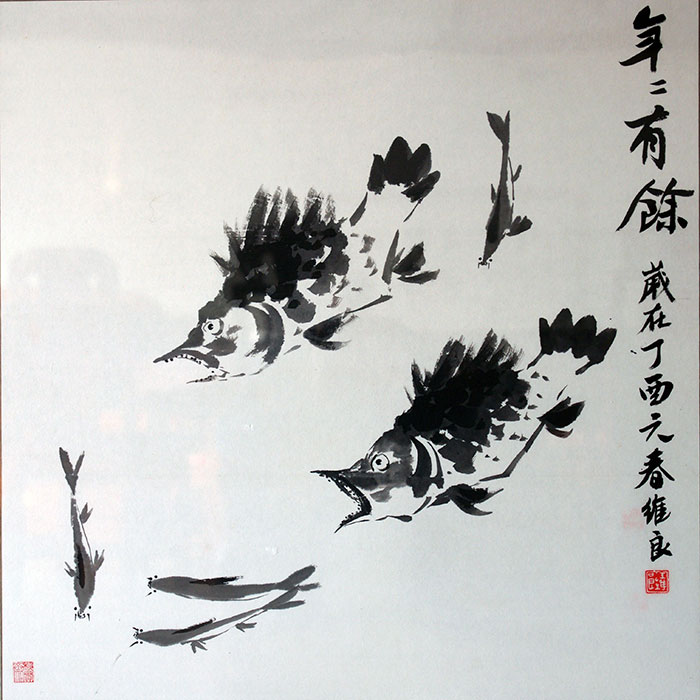 年〻有餘
歲在丁酉元春維良